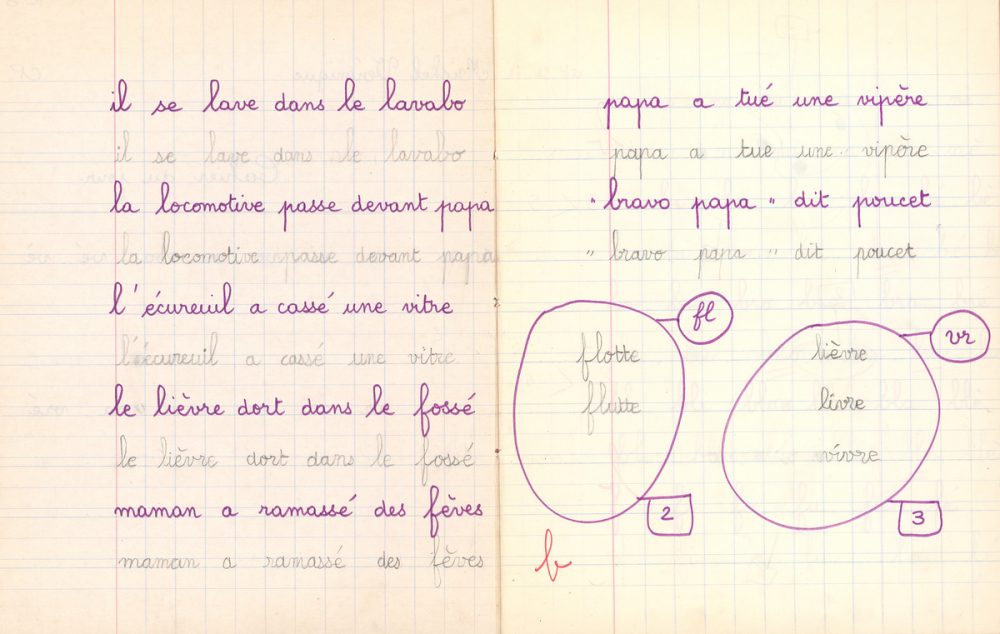 il se lave dans le lavabo
il se lave dans le lavabo
la locomotive passe devant papa
la locomotive passe devant papa
l'écureuil a cassé une vitre
l'écureuil a cassé une vitre
le lièvre dort dans le fossé
le lièvre dort dans le fossé
maman a ramassé des fèves
maman a ramassé des fèves
papa a tué une vipère
papa a tue une vipère
" bravo papa " dit poucet
" bravo papa " dit poucet
fl
flotte
flutte
2
vr
lièvre
livre
vivre
3